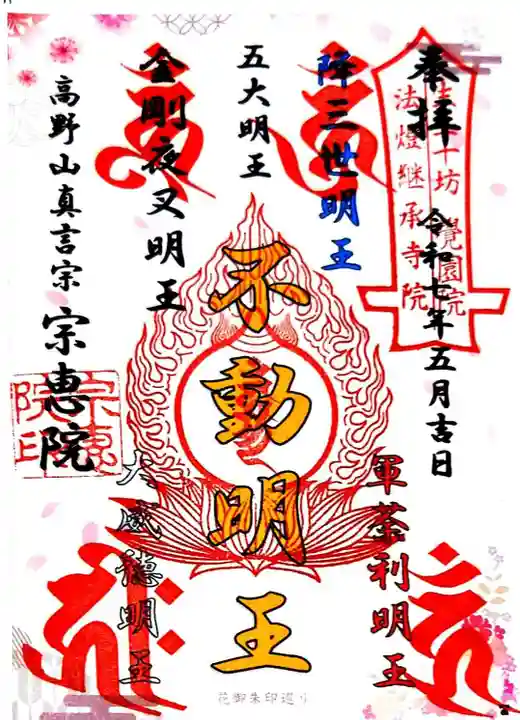 奉拝
令和七年五月吉日
法燈継承寺院
覺園院
降三世明王
軍荼利明王
五大明王
不動明王
金剛夜叉明王
大威徳明王
高野山真言宗
宗恵院
宗恵院印
花御朱印巡り